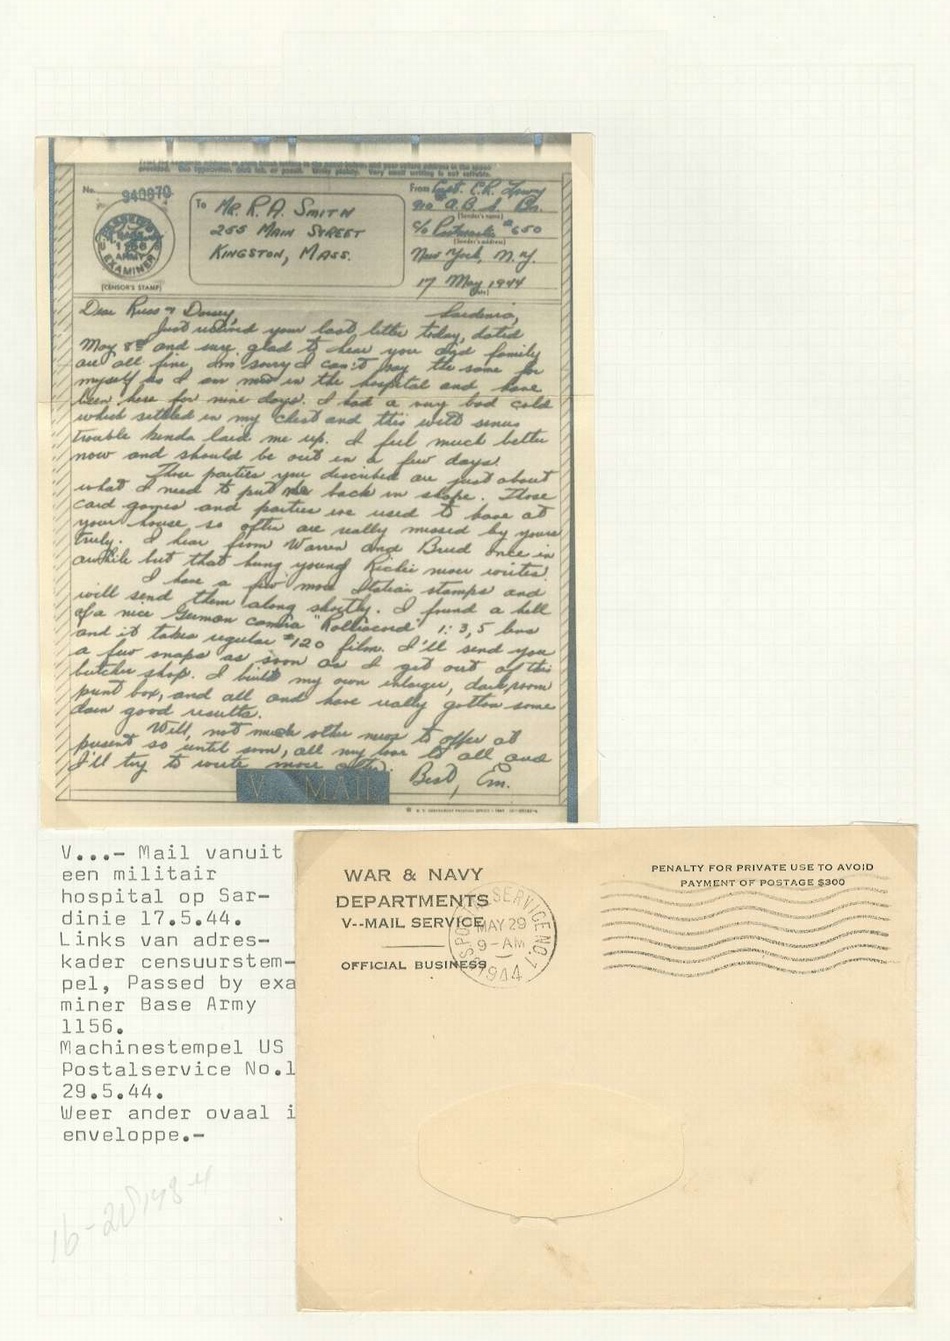 No.
940970
PASSED BY
BASE
1156
ARMY
EXAMINER
(CENSOR'S STAMP)
To MR. R. A. SMITH
255 MAIN STREET
KINGSTON, MASS.
From Capt. E.R.
A.B.S.
(Sender's name)
c/o Postmaster #650
(Sender's address)
New York, N.Y.
17 May 1944
Dear Russ &
Sardinia,
Just received your last letter today, dated
May 8th and sure glad to hear you and family
are all fine, I'm sorry I can't say the same for
myself as I am now in the hospital and have
been here for nine days. I had a very bad cold
which settled in my chest and this with sinus
trouble kinda laid me up. I feel much better
now and should be out in a few days.
Those parties you described are just about
what I need to put me back in shape. Those
card games and parties we used to have at
your house so often are really missed by yours
truly. I hear from Warren and Brud once in
awhile but that young Richie never writes.
I have a few more Italian stamps and
will send them along shortly. I found a hell
of a nice German camera "Rolliecord" 1:3,5 lens
and it takes regular #120 film. I'll send you
a few snaps as soon as I get out of this
butcher shop. I built my own enlarger, darkroom
print box, and all and have really gotten some
darn good results.
Well, not much other news to offer at
present so until soon, all my love to all and
I'll try to write more often. Best, Em.
V - MAIL
V...- Mail vanuit
een militair
hospital op Sar-
dinie 17.5.44.
Links van adres-
kader censuurstem-
pel, Passed by exa
miner Base Army
1156.
Machinestempel US
Postalservice No.1
29.5.44.
Weer ander ovaal i
enveloppe.-
16-20148-4
WAR & NAVY
DEPARTMENTS
V--MAIL SERVICE
OFFICIAL BUSINESS
U.S. POSTAL SERVICE NO. 1
MAY 29
9-AM
1944
PENALTY FOR PRIVATE USE TO AVOID
PAYMENT OF POSTAGE $300